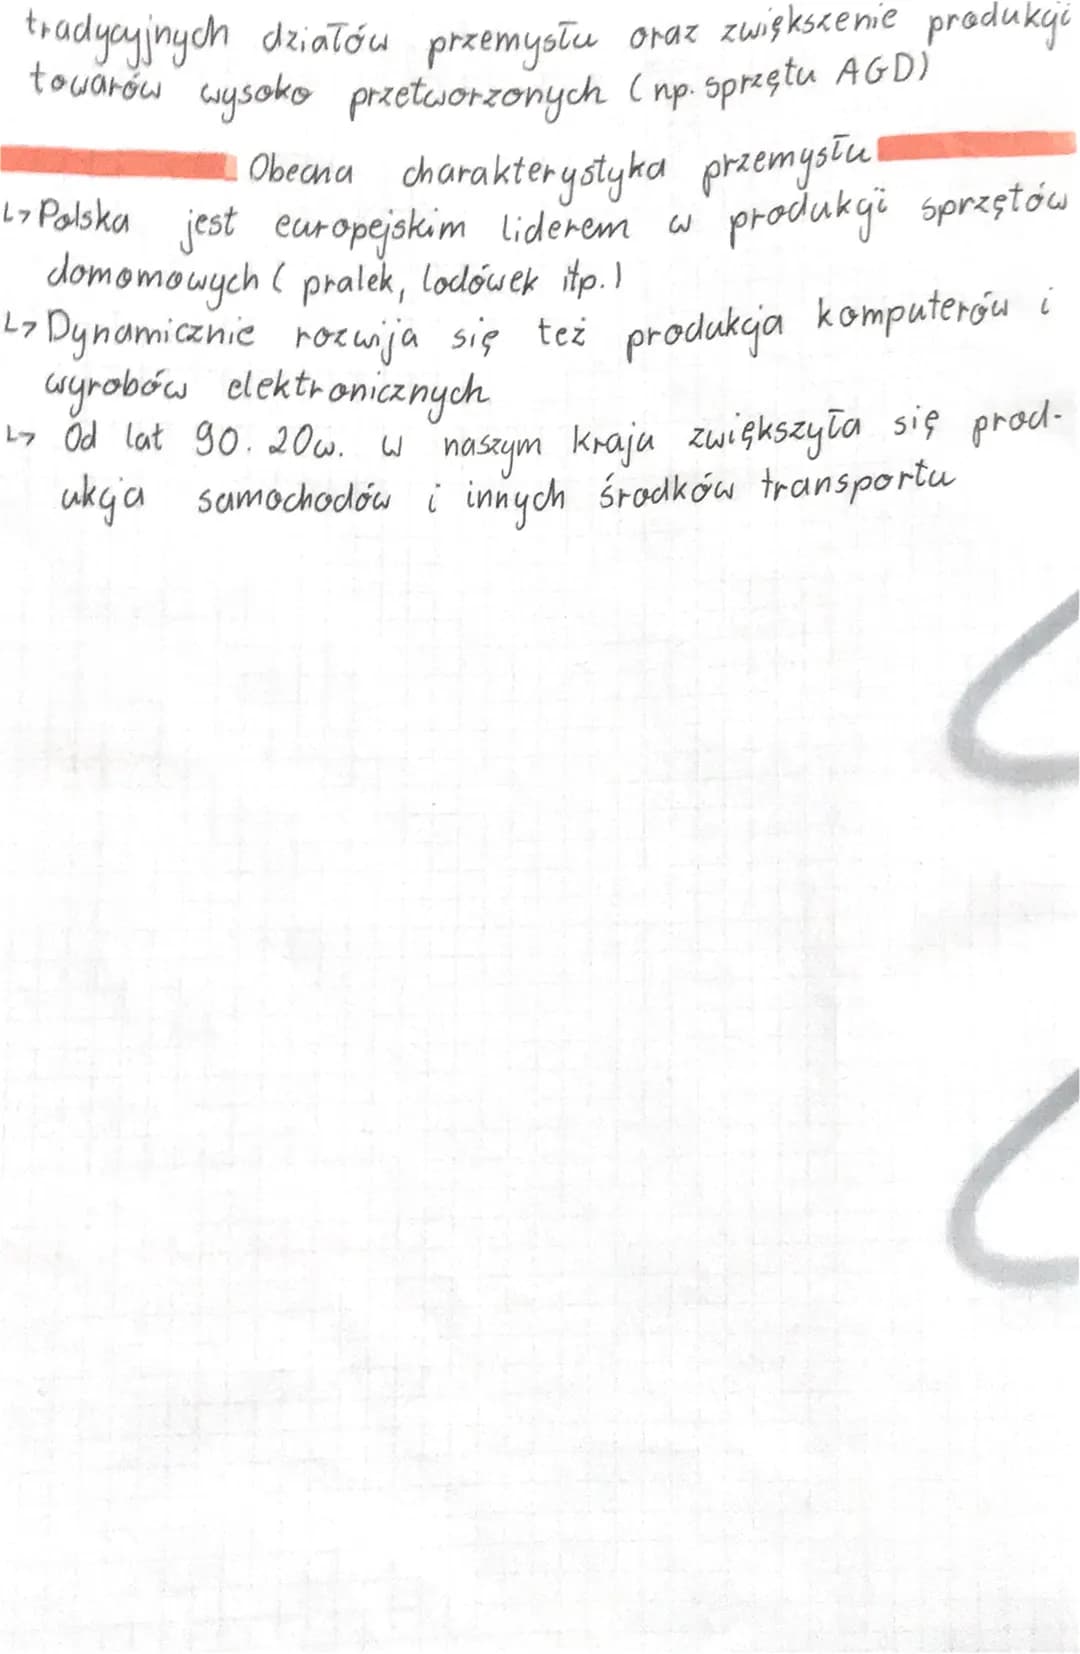 tradycyjnych działów przemysłu oraz zwiększenie produkcji
towarów wysoko przetworzonych (np. sprzętu AGD)
Obecna charakterystyka przemysłu
↳ Polska jest europejskim liderem w produkcji sprzętów
domomowych ( pralek, lodówek itp.)
↳ Dynamicznie rozwija się też produkcja komputerów i
wyrobów elektronicznych
↳ Od lat 90. 20w. w naszym kraju zwiększyła się prod-
ukcja samochodów i innych środków transportu